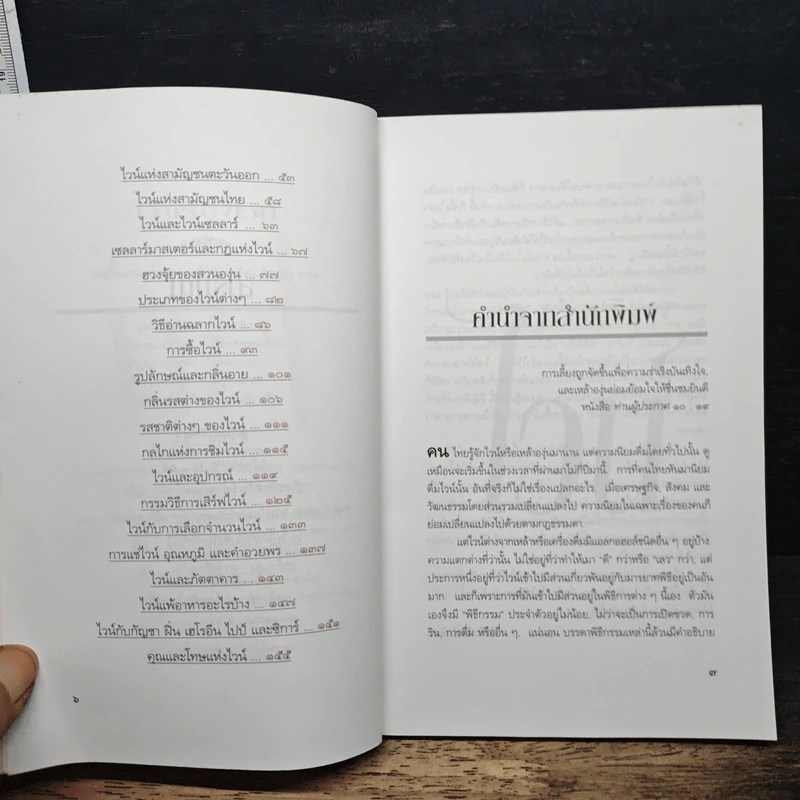 ไวน์แห่งสามัญชนตะวันออก ... ๕๓
ไวน์แห่งสามัญชนไทย ... ๕๘
ไวน์และไวน์เซลลาร์ ... ๖๓
เซลลาร์มาสเตอร์และกฎแห่งไวน์ ... ๖๗
ฮวงจุ้ยของสวนองุ่น ... ๗๗
ประเภทของไวน์ต่างๆ ... ๘๒
วิธีอ่านฉลากไวน์ ... ๘๖
การซื้อไวน์ ... ๙๓
รูปลักษณ์และกลิ่นอาย ... ๑๐๑
กลิ่นรสต่างของไวน์ ... ๑๐๖
รสชาติต่างๆ ของไวน์ ... ๑๑๑
กลไกแห่งการชิมไวน์ ... ๑๑๕
ไวน์และอุปกรณ์ ... ๑๑๙
กรรมวิธีการเสิร์ฟไวน์ ... ๑๒๕
ไวน์กับการเลือกจำนวนไวน์ ... ๑๓๓
การแช่ไวน์ อุณหภูมิ และคำอวยพร ... ๑๓๗
ไวน์และภัตตาคาร ... ๑๔๓
ไวน์แพ้อาหารอะไรบ้าง ... ๑๔๗
ไวน์กับกัญชา ฝิ่น เฮโรอีน ไปป์ และซิการ์ ... ๑๕๑
คุณและโทษแห่งไวน์ ... ๑๕๕
๖
คำนำจากสำนักพิมพ์
การเลี้ยงถูกจัดขึ้นเพื่อความร่าเริงบันเทิงใจ,
และเหล้าองุ่นย่อมย้อมใจให้ชื่นชมยินดี
หนังสือ ท่านผู้ประกาศ ๑๐ : ๑๙
คน ไทยรู้จักไวน์หรือเหล้าองุ่นมานาน แต่ความนิยมดื่มโดยทั่วไปนั้น ดู
เหมือนจะเริ่มขึ้นในช่วงเวลาที่ผ่านมาไม่กี่ปีมานี้ การที่คนไทยหันมานิยม
ดื่มไวน์นั้น อันที่จริงก็ไม่ใช่เรื่องแปลกอะไร เมื่อเศรษฐกิจ, สังคม และ
วัฒนธรรมโดยส่วนรวมเปลี่ยนแปลงไป ความนิยมในเฉพาะเรื่องของคนก็
ย่อมเปลี่ยนแปลงไปด้วยตามกฎธรรมดา
แต่ไวน์ต่างจากเหล้าหรือเครื่องดื่มมีแอลกอฮอล์ชนิดอื่น ๆ อยู่บ้าง
ความแตกต่างที่ว่านั้น ไม่ใช่อยู่ที่ว่าทำให้เมา "ดี" กว่าหรือ "เลว" กว่า, แต่
ประการหนึ่งอยู่ที่ว่าไวน์เข้าไปมีส่วนเกี่ยวพันอยู่กับมารยาทพิธีอยู่เป็นอัน
มาก และก็เพราะการที่มันเข้าไปมีส่วนอยู่ในพิธีการต่าง ๆ นี้เอง ตัวมัน
เองจึงมี "พิธีกรรม" ประจำตัวอยู่ไม่น้อย, ไม่ว่าจะเป็นการเปิดขวด, การ
ริน, การดื่ม หรืออื่น ๆ. แน่นอน บรรดาพิธีกรรมเหล่านี้ล้วนมีคำอธิบาย
๗